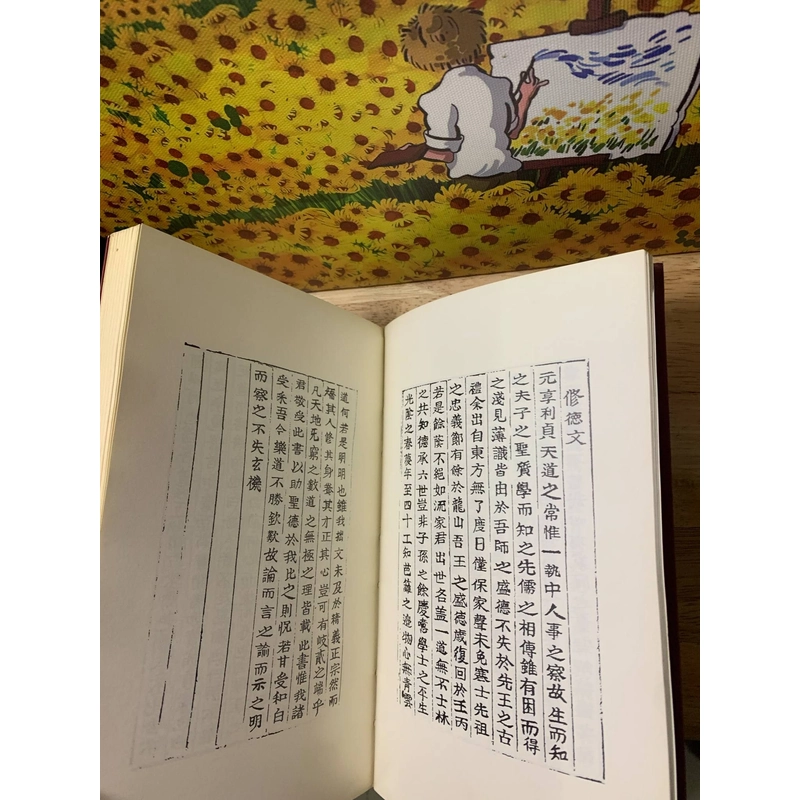 修德文
元亨利貞天道之常惟一執中人事之察故生而知
之夫子之聖質學而知之先儒之相傳雖有困而得
之淺見薄識皆由於吾師之盛德不失於先王之古
禮余出自東方無了度日僅保家聲未免寒士先祖
之忠義節有餘於龍山吾王之盛德歲復回於壬丙
若是餘蔭不絕如流家君出世名盖一道無不士林
之共知德承六世豈非子孫之餘慶噫學士之平生
光陰之春夢年至四十工知芭籬之邊物心無靑雲
道何若是明明也雖我拙文未及於精義正宗然而
矯其人修其身養其才正其心豈可有岐貳之端乎
凡天地無窮之數道之無極之理皆載此書惟我諸
君敬受此書以助聖德於我比之則怳若甘受和白
受采吾今樂道不勝欽歎故論而言之諭而示之明
而察之不失玄機